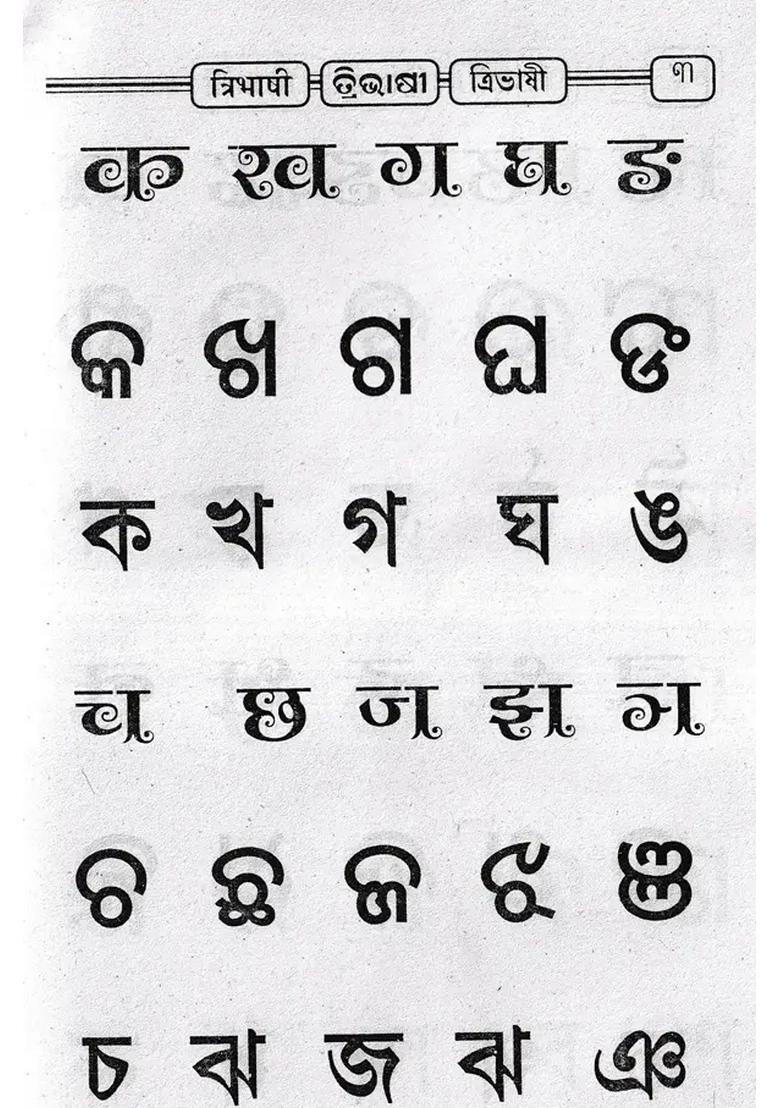 त्रिभाषी ତ୍ରିଭାଷୀ ত্রিভাষী ୩
क ख ग घ ङ
କ ଖ ଗ ଘ ଙ
ক খ গ ঘ ঙ
च छ ज झ ञ
ଚ ଛ ଜ ଝ ଞ
চ ঝ জ ঝ ঞ